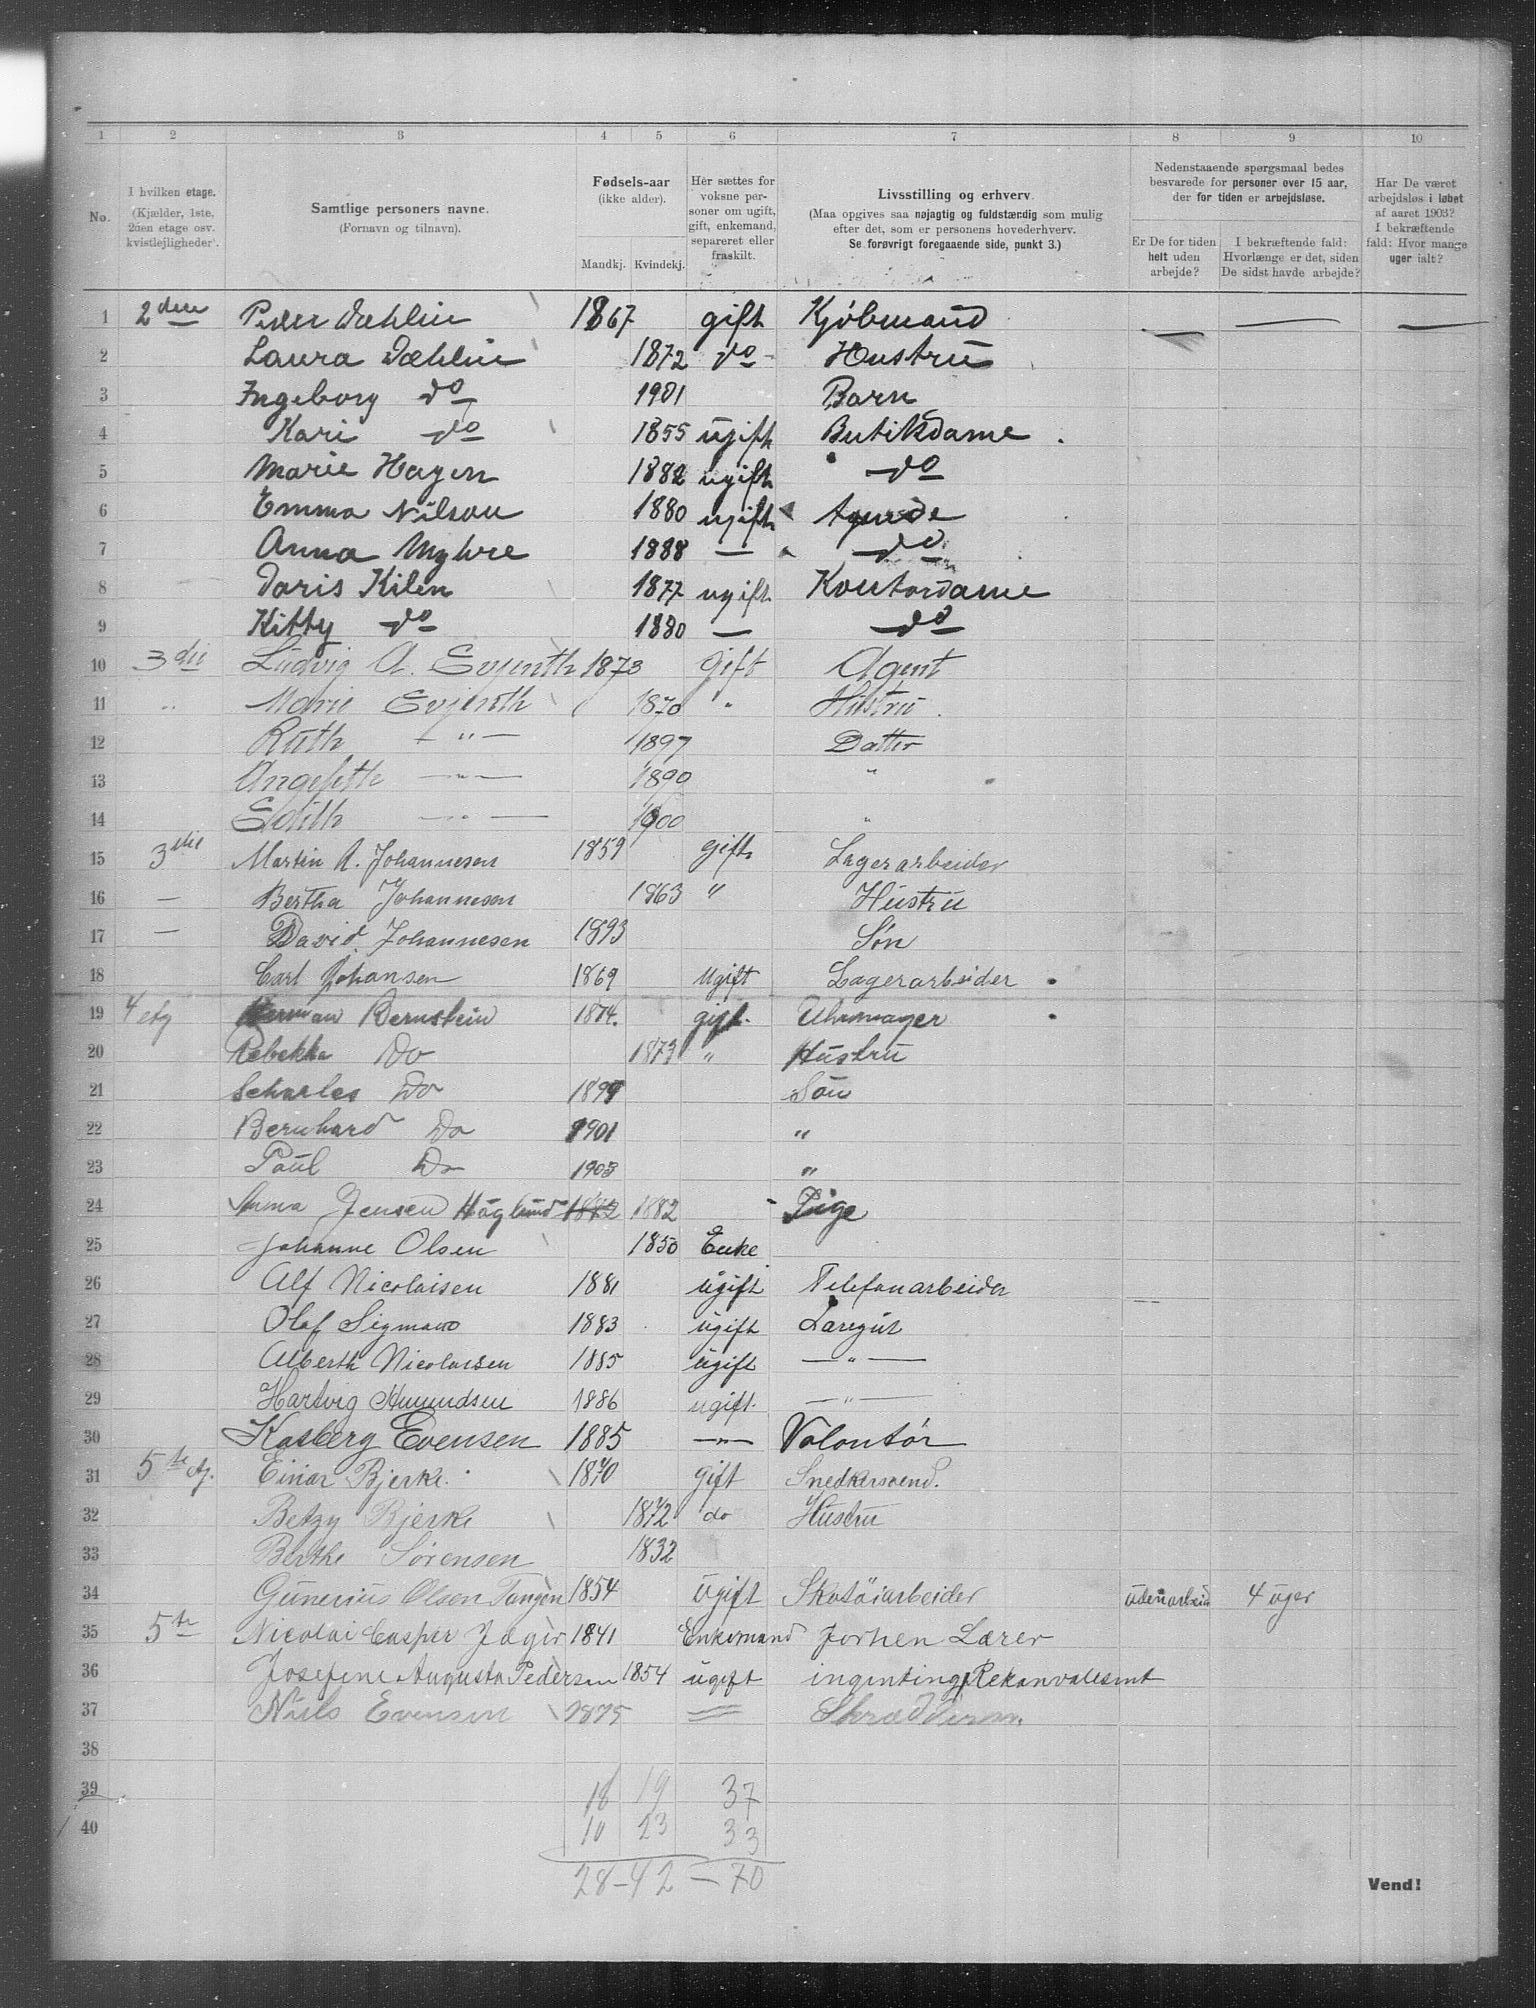 1 2 3 4 5 6 7 8 9 10
No.
I hvilken etage.
(Kjælder, 1ste,
2den etage osv.
kvistleiligheder).
Samtlige personers navne.
(Fornavn og tilnavn).
Fødsels-aar
(ikke alder).
Mandkj. Kvindekj.
Her sættes for
voksne per-
soner om ugift,
gift, enkemand,
separeret eller
fraskilt.
Livsstilling og erhverv.
(Maa opgives saa nøjagtig og fuldstærdig som mulig
efter det, som er personens hovederhverv.
Se forøvrigt foregaaende side, punkt 3.)
Nedenstaaende spørgsmaal bedes
besvarede for personer over 15 aar,
der for tiden er arbejdsløse.
Er De for tiden
helt uden
arbejde?
I bekræftende fald:
Hvorlænge er det, siden
De sidst havde arbejde?
Har De været
arbejdsløs i løbet
af aaret 1903?
I bekræftende
fald: Hvor mange
uger ialt?
1 2den Peder Dæhlin 1867 gift Kjøbmand — — —
2 Laura Dæhlin 1872 do Hustru
3 Ingeborg do 1901 Barn
4 Kari do 1855 ugift Butikdame
5 Marie Hagen 1882 ugift do
6 Emma Nilson 1880 ugift
7 Anna Myhre 1888 — do
8 Doris Kilen 1877 ugift Kontordame
9 Kitty do 1880 — do
10 3die Ludvig A. Evjenth 1873 gift Agent
11 " Marie Evjenth 1870 " Hustru
12 Ruth — " — 1897 Datter
13 — " — 1890 "
14 Edith — " — 1900 "
15 3die Martin A. Johannesen 1859 gift Lagerarbeider
16 — Bertha Johannesen 1863 " Hustru
17 — David Johannesen 1893 Søn
18 Carl Johansen 1869 Ugift Lagerarbeider
19 4 etg Herman Bernstein 1874. gift. Uhrmager
20 Rebekka Do 1873 " Hustru
21 Scharles Do 1899 Sön
22 Bernhard Do 1901 "
23 Paul Do 1903 "
24 Anna Jensen Höglund 1882 1882 Pige
25 Johanne Olsen 1850 Enke
26 Alf Nicolaisen 1881 ugift Telefonarbeider —
27 Olaf Sigmand 1883 ugift Læregut
28 Alberth Nicolaisen 1885 ugift — " —
29 Hartvig Amundsen 1886 ugift. — " —
30 Kasberg Evensen 1885 — " — Volontør
31 5te etg. Einar Bjerke 1870 gift Snedkersvend.
32 Betzy Bjerke 1872 do Hustru
33 Berthe Sörensen 1832
34 Gunerius Olsen Tangen 1854 ugift Skotöiarbeider uden arbeid 4 uger
35 5te Nicolai Casper Jager 1841 Enkemand Forhen Lærer
36 Josefine Augusta Pedersen 1854 ugift ingenting, Rekonvalesent
37 Niels Evensen 1875 =
38
39 18 19 37
40 10 23 33
28 - 42 = 70
Vend!